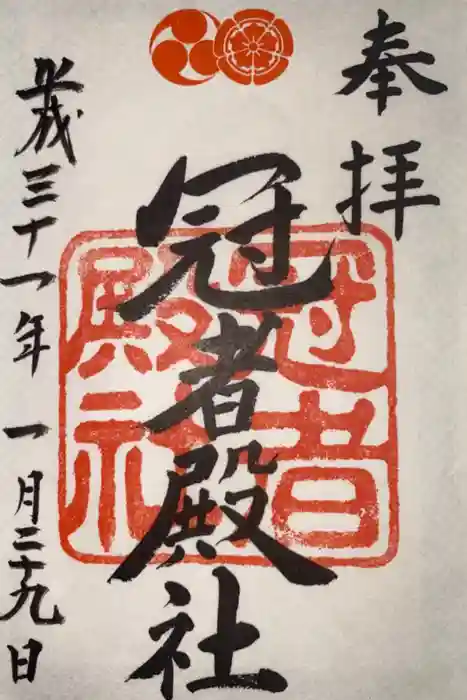 奉拝
冠者殿社
冠者殿社
平成三十一年 一月二十九日